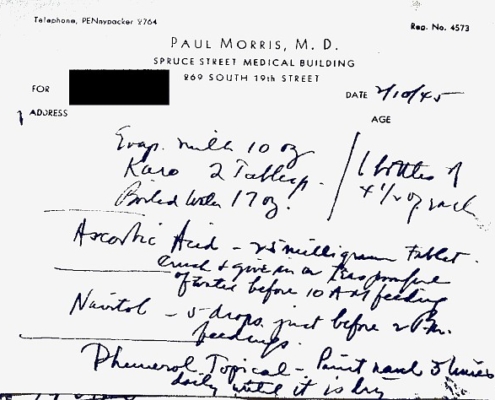 Telephone, PENnypacker 2764
Reg. No. 4573
PAUL MORRIS, M. D.
SPRUCE STREET MEDICAL BUILDING
269 SOUTH 19th STREET
FOR
DATE 2/10/45
ADDRESS
AGE
Evap. milk 10 oz
Karo 2 Tablesp.
Boiled Water 17 oz.
6 bottles of
4 1/2 oz each
Ascorbic Acid - 25 milligram Tablet.
Crush & give in a teaspoonful
of water before 10 AM feeding
Navitol - 5 drops just before 2 P.M.
feedings.
Phemerol Topical - Paint navel 3 times
daily until it is dry